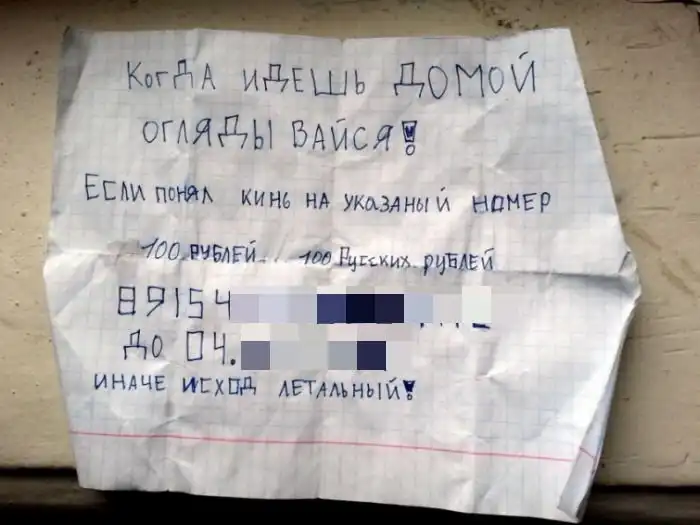 КогДА ИДЕШЬ ДОМОЙ
ОГЛЯДЫВАЙСЯ!
ЕСЛИ ПОНЯЛ КИНЬ НА УКАЗАНЫЙ НОМЕР
100 РУБЛЕЙ... 100 Русских рублей
89154
ДО 04.
ИНАЧЕ ИСХОД ЛЕТАЛЬНЫЙ!